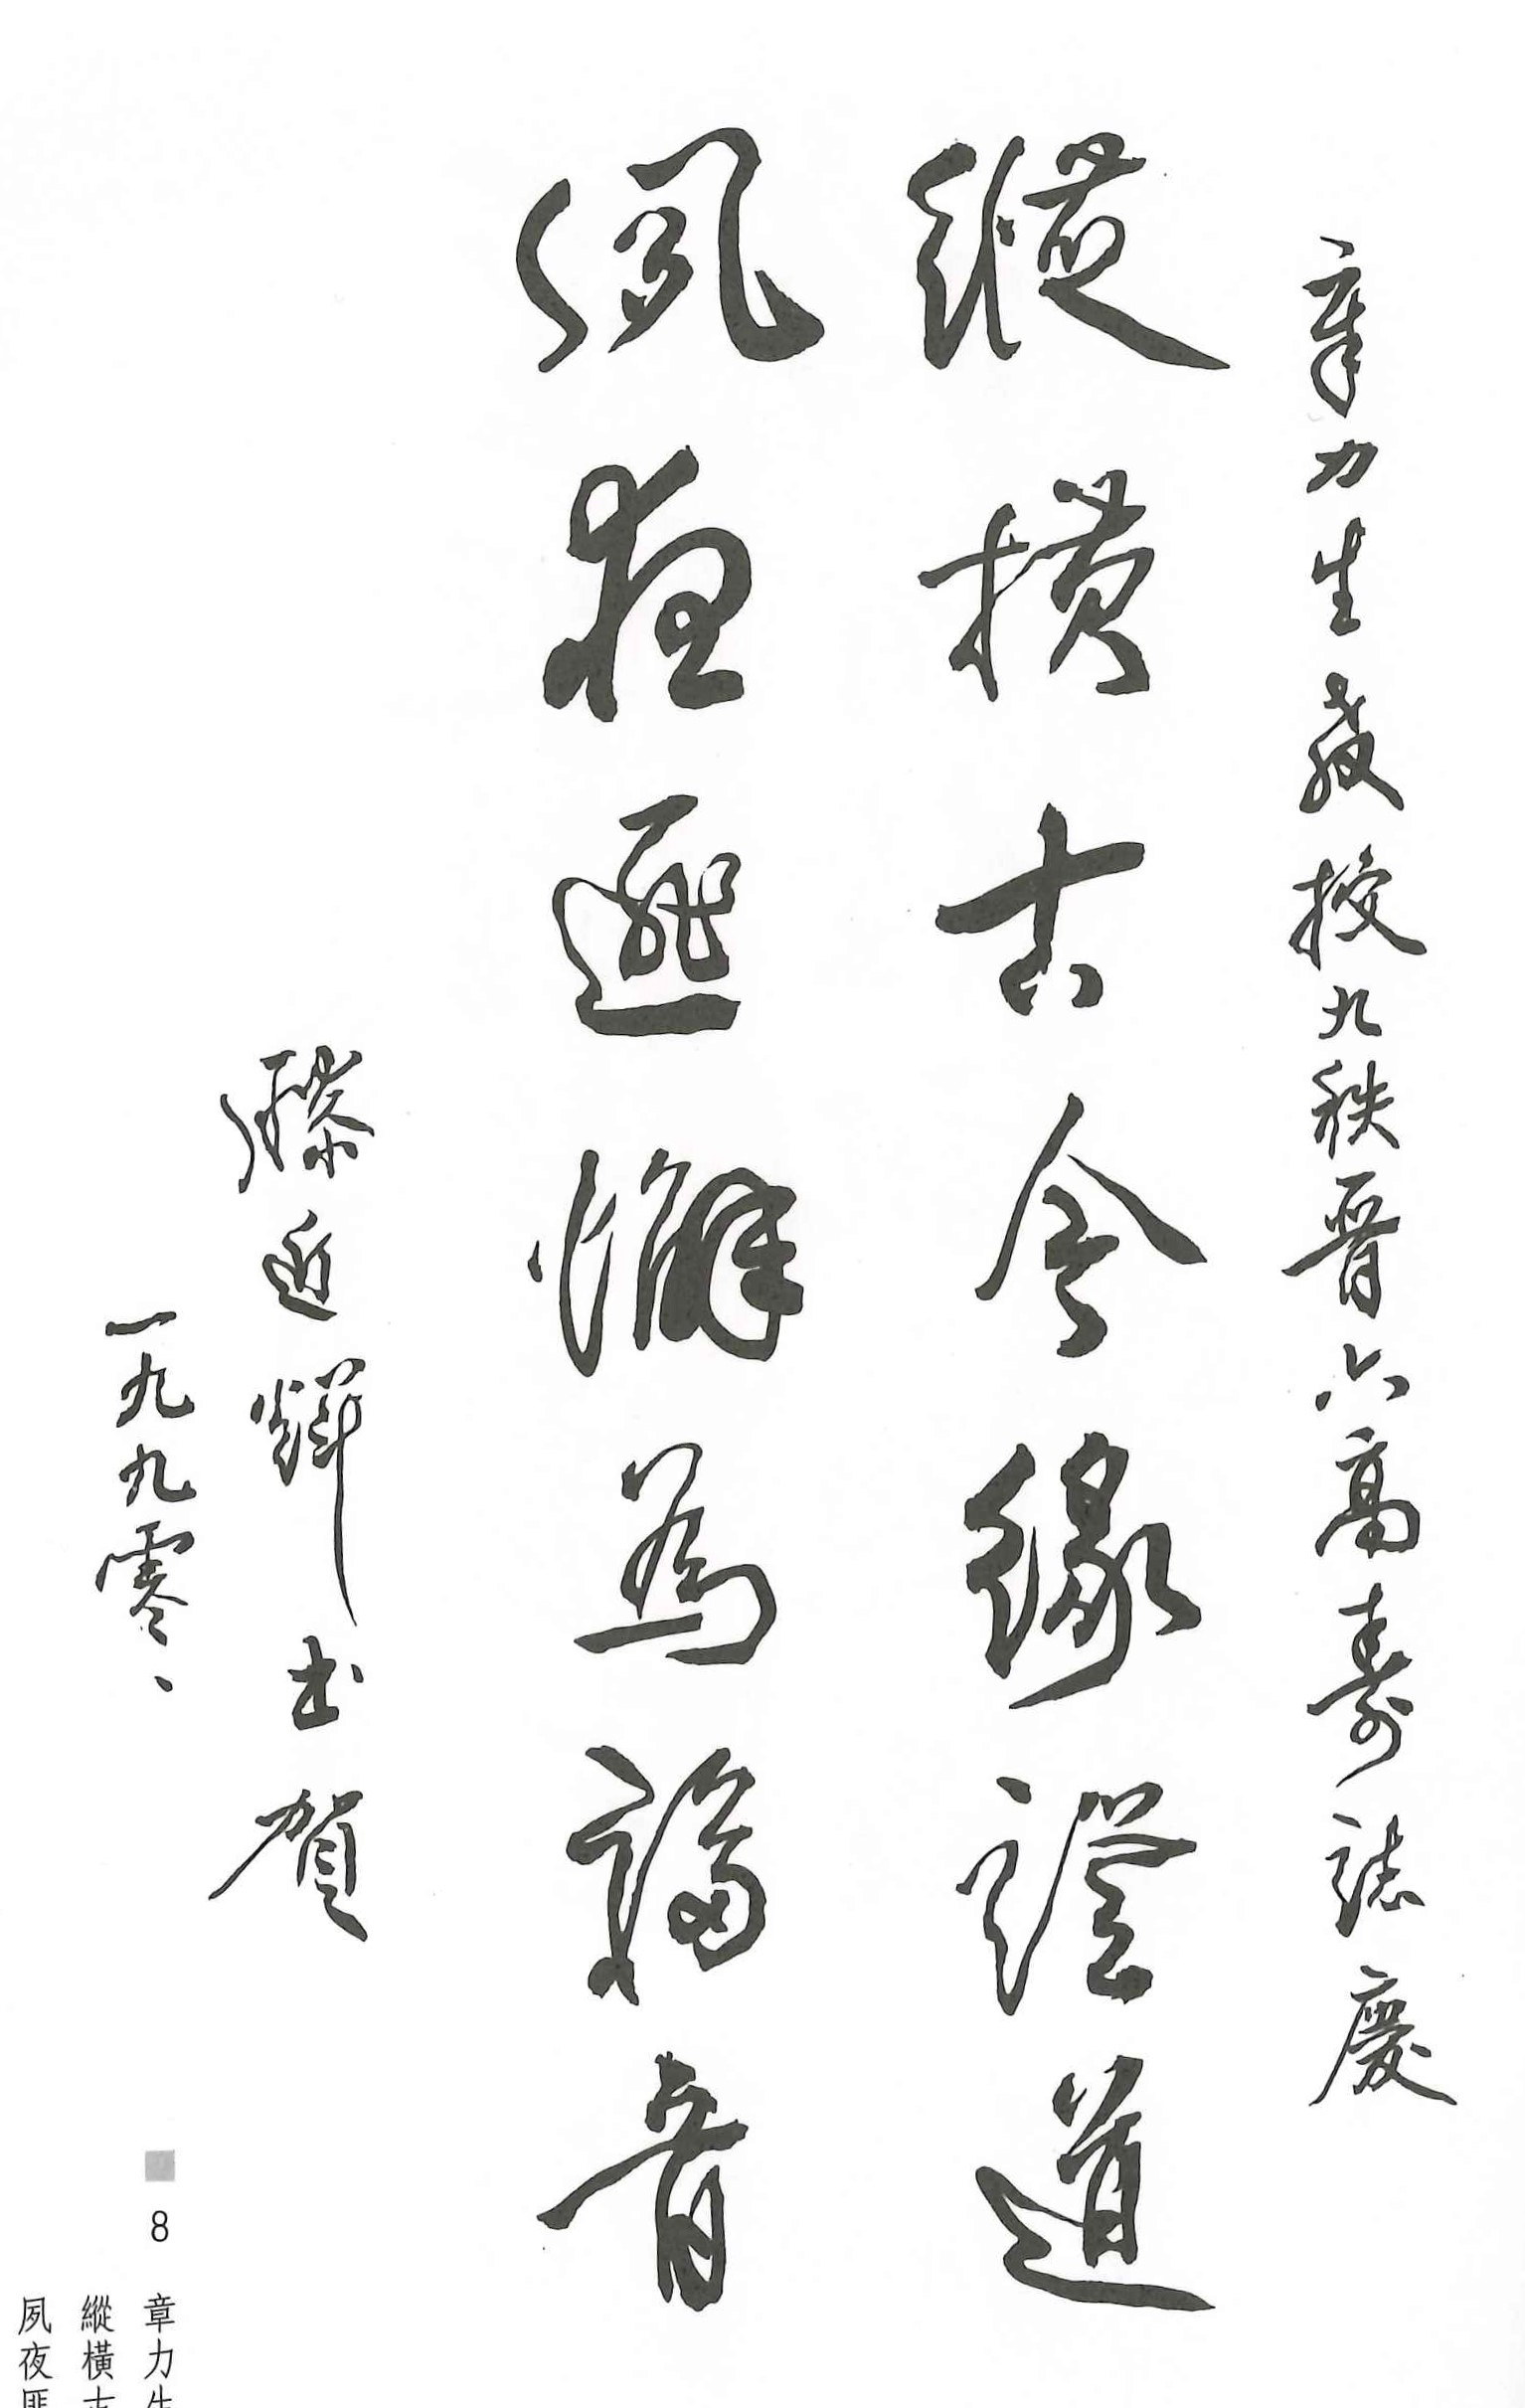 章力生教授九秩晉六高壽誌慶
縱橫古今緣證道
夙夜匪懈為福音
滕近輝書賀
一九九零、
8
章力生
縱橫古
夙夜匪